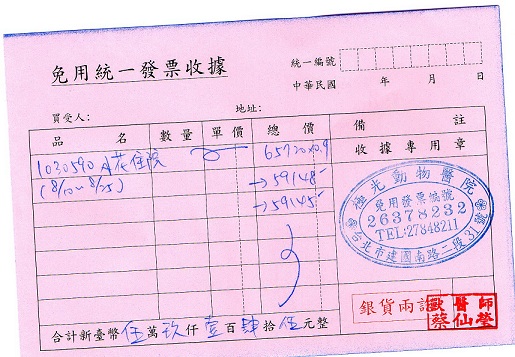 免用統一發票收據
統一編號
中華民國 年 月 日
買受人： 地址：
品名 數量 單價 總價 備註
收據專用章
1030590 花住院 65720×0.9
(8/10~8/25) →59148
→59145
極光動物醫院
免用發票編號
26378232
TEL:27848211
台北市建國南路二段31號
銀貨兩訖
獸醫師
蔡仙瑩
合計新臺幣伍萬玖仟壹百肆拾伍元整